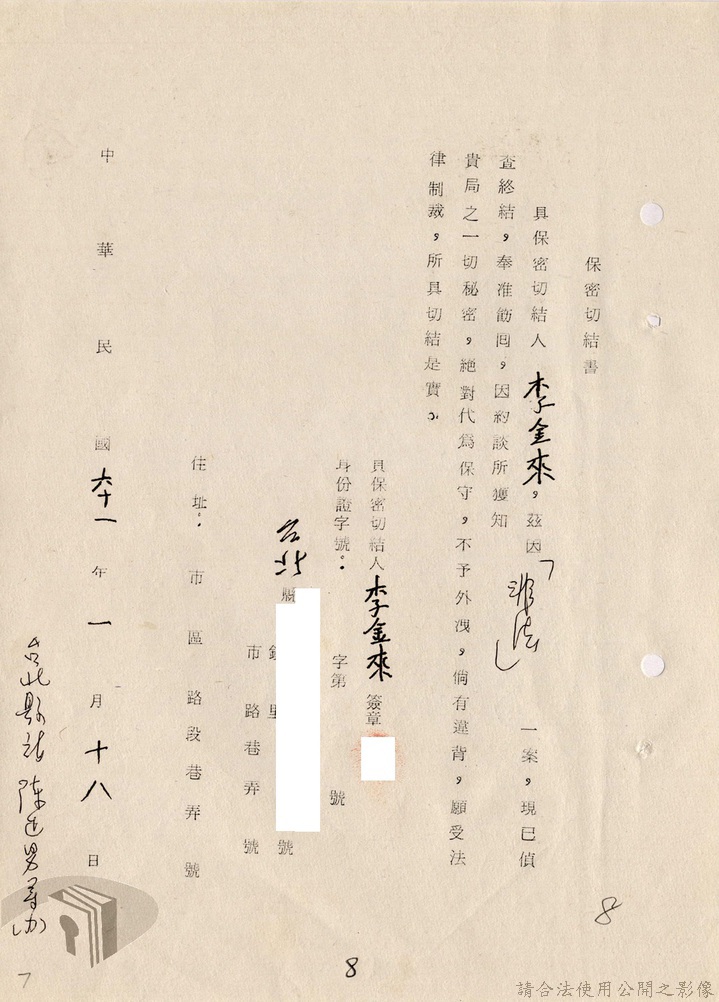 保密切結書
具保密切結人李金來，茲因「非法」一案，現已偵
查終結，奉准飭回，因約談所獲知
貴局之一切秘密，絕對代為保守，不予外洩，倘有違背，願受法
律制裁，所具切結是實。
具保密切結人李金來簽章
身份證字號：字第號
台北縣鎮里號
市路巷弄號
住址：市區路段巷弄號
中華民國六十一年一月十八日
台北縣站陳
8
8
7
請合法使用公開之影像